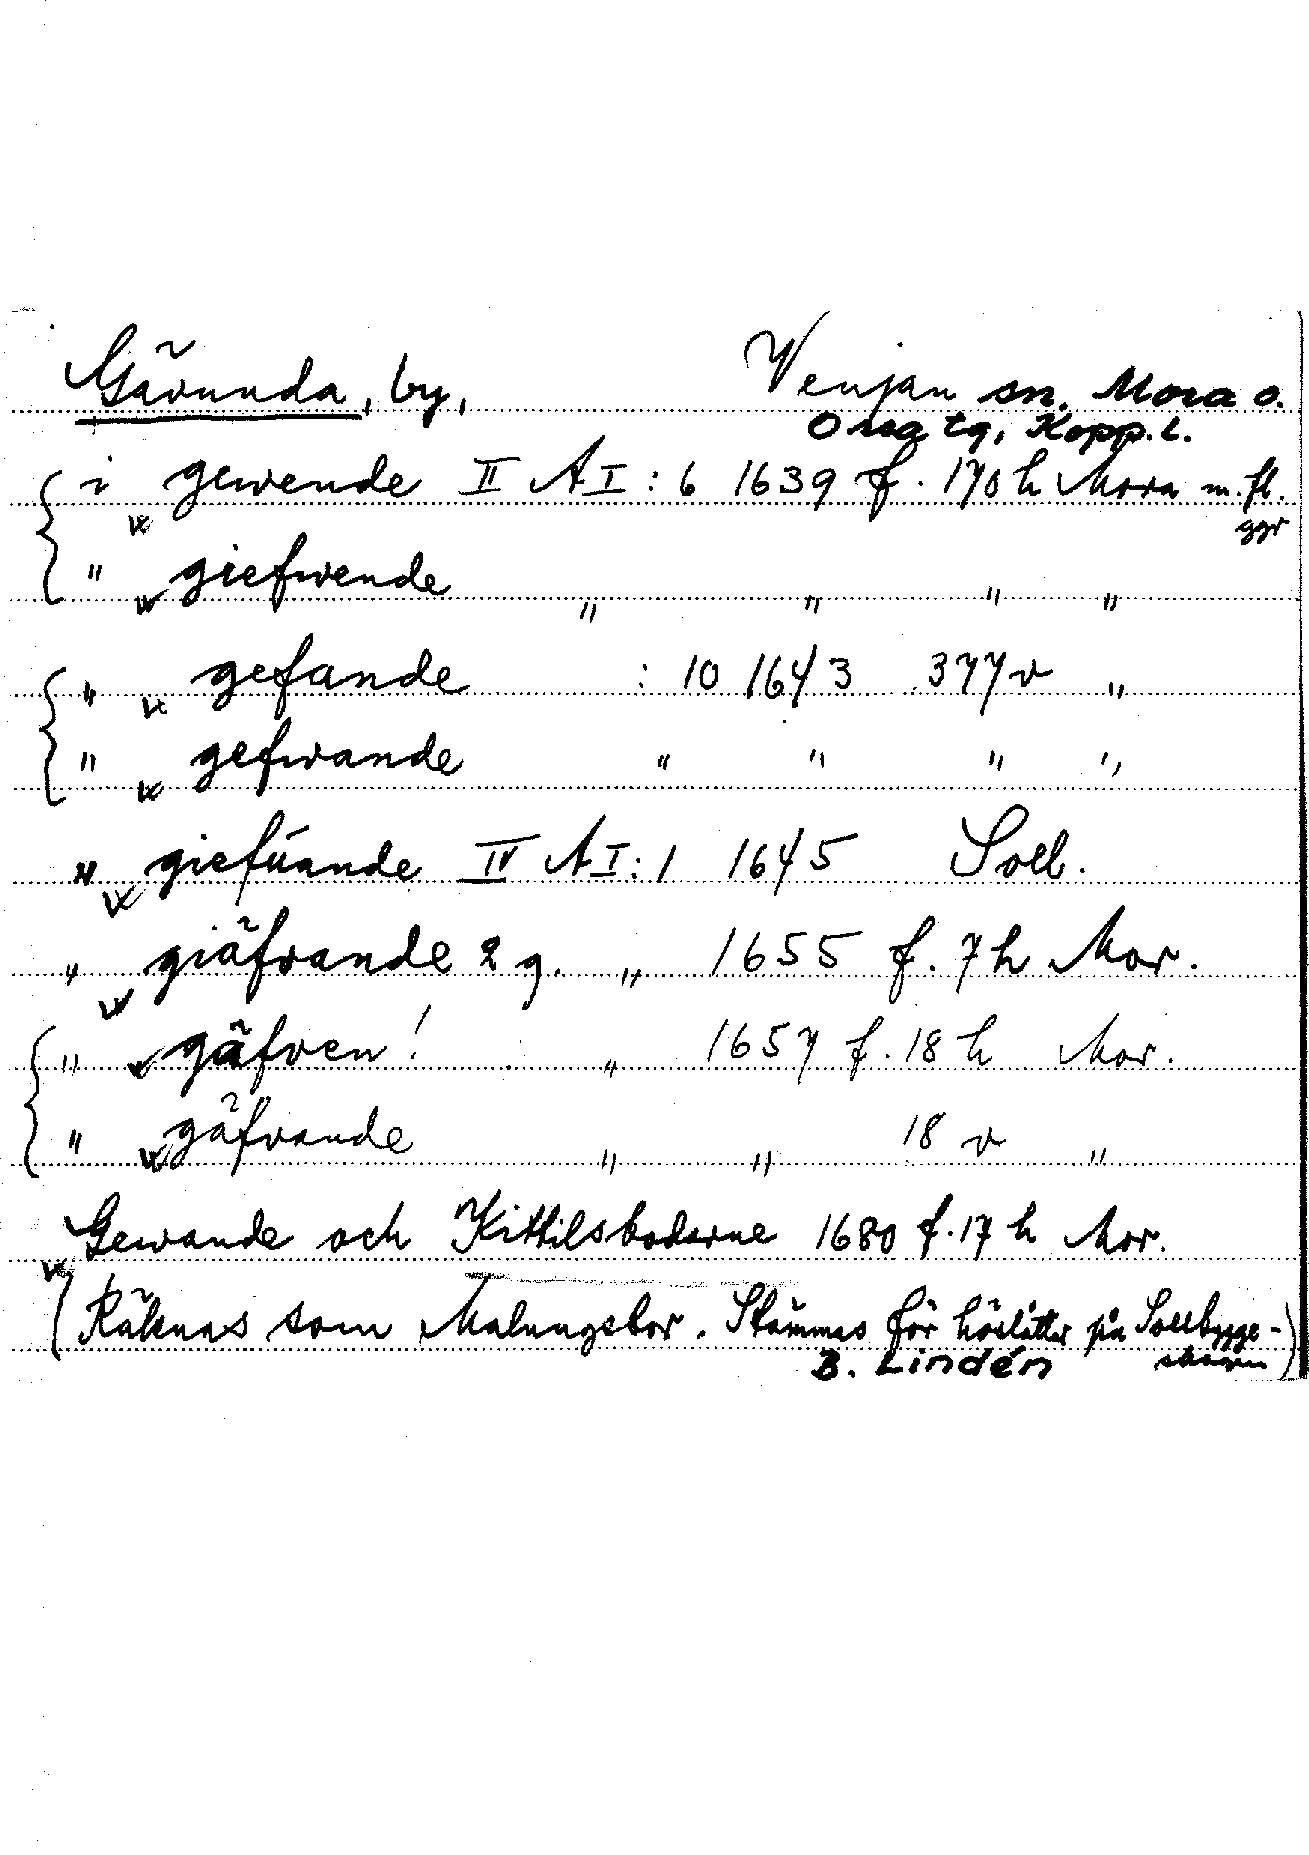 Gävunda, by, Venjan sn. Mora o.
Orsa tg, Kopp. l.
i gewende II A I : 6 1639 f. 170 h Mora m. fl.
ggr
" giefwende " " " "
" gefande : 10 1643 377 v "
" gefwande " " " "
" giefúande IV A I : 1 1645 Soll.
" giäfvande 2 g. " 1655 f. 7 h Mor.
" gäfven! " 1657 f. 18 h Mor.
" gäfvande " " 18 v "
Gewande och Kittilsbodarne 1680 f. 17 h Mor.
(Räknas som Malungsbor. Stämmas för höslåtter på Sollbygge-
skogen)
B. Lindén